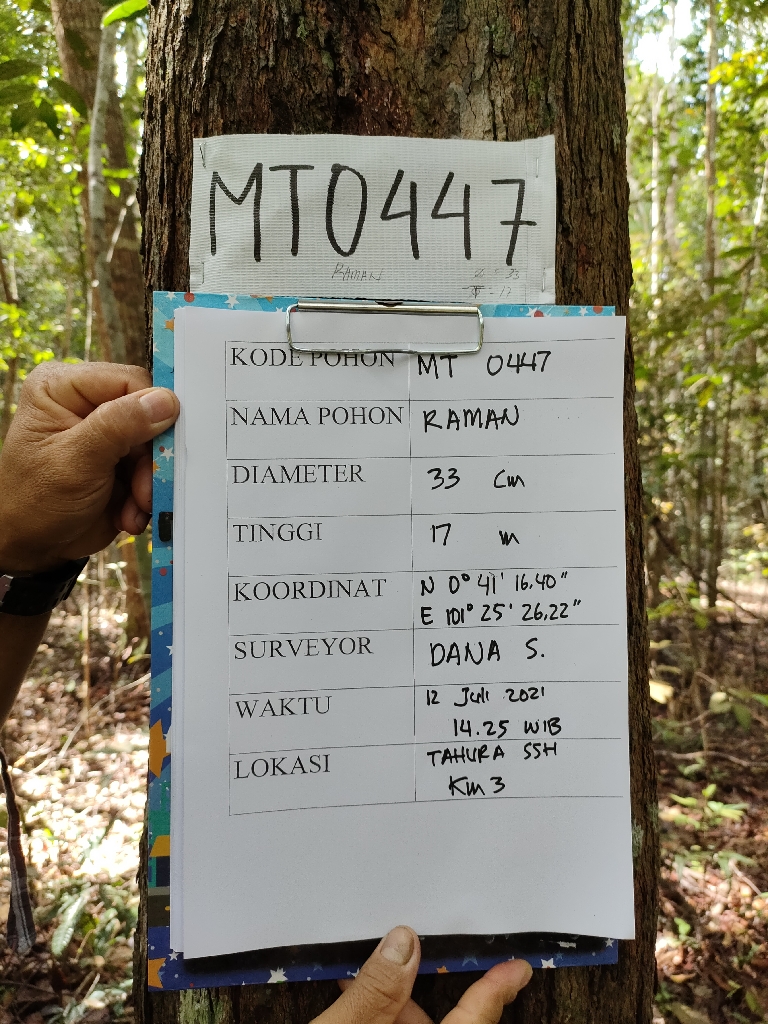 MT0447
RAMAN
33
17
KODE POHON MT 0447
NAMA POHON RAMAN
DIAMETER 33 Cm
TINGGI 17 m
KOORDINAT N 0° 41' 16,40"
E 101° 25' 26,22"
SURVEYOR DANA S.
WAKTU 12 Juli 2021
14.25 WIB
LOKASI TAHURA SSH
Km 3